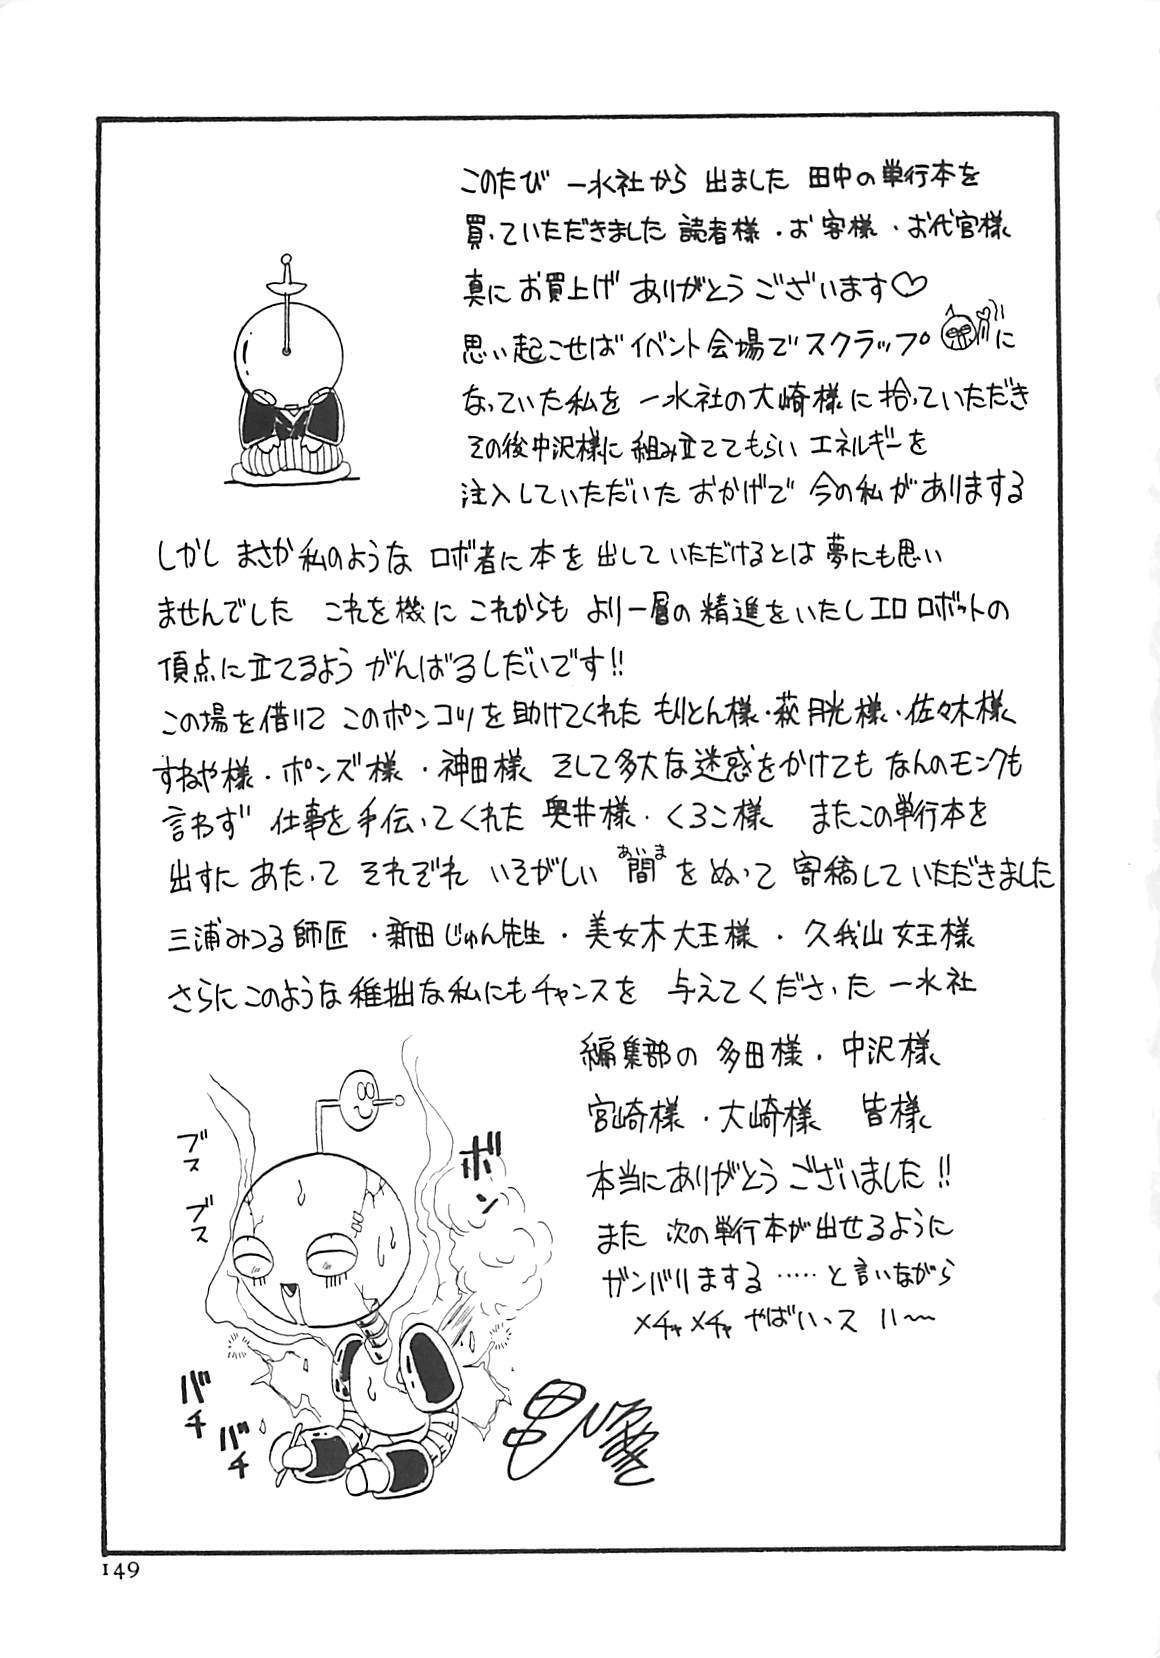 このたび 一水社から 出ました 田中の単行本を
買っていただきました 読者様・お客様・お代官様
真に お買上げ ありがとう ございます♡
思い起こせば イベント会場で スクラップ に
なっていた私を 一水社の大崎様に 拾っていただき
その後中沢様に 組み立ててもらい エネルギーを
注入していただいた おかげで 今の私がありまする
しかし まさか私のような ロボ者に 本を 出していただけるとは 夢にも思い
ませんでした これを機に これからも より一層の 精進をいたし エロロボットの
頂点に立てるよう がんばるしだいです!!
この場を借りて このポンコツを助けてくれた もりとん様・萩月光様・佐々木様
すねや様・ポンズ様・神田様 そして多大な迷惑をかけても なんのモンクも
言わず 仕事を手伝ってくれた 奥井様・くろこ様 またこの単行本を
出すに あたって それぞれ いそがしい 間をぬって 寄稿していただきました
あいま
三浦みつる師匠・新田じゅん先生・美女木大王様・久我山女王様
さらにこのような稚拙な私にもチャンスを 与えてくださった 一水社
編集部の 多田様・中沢様
宮崎様・大崎様 皆様
本当にありがとうございました!!
また 次の単行本が出せるように
ガンバリまする……と言いながら
メチャメチャ やばいっス
ブス
ブス
ボン
バチ
バチ
149